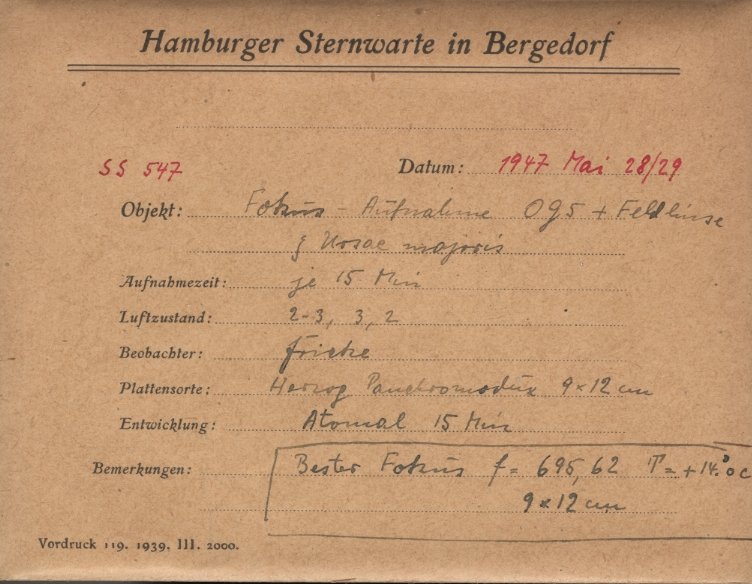 Hamburger Sternwarte in Bergedorf
SS 547 Datum: 1947 Mai 28/29
Objekt: Fokus - Aufnahme OG5 + Feldlinse
ξ Ursae majoris
Aufnahmezeit: je 15 Min
Luftzustand: 2-3, 3, 2
Beobachter: Fricke
Plattensorte: Herzog 9×12 cm
Entwicklung: Atomal 15 Min
Bemerkungen: Bester Fokus f = 695,62 T = +14.°0 C
9×12 cm
Vordruck 119. 1939. III. 2000.